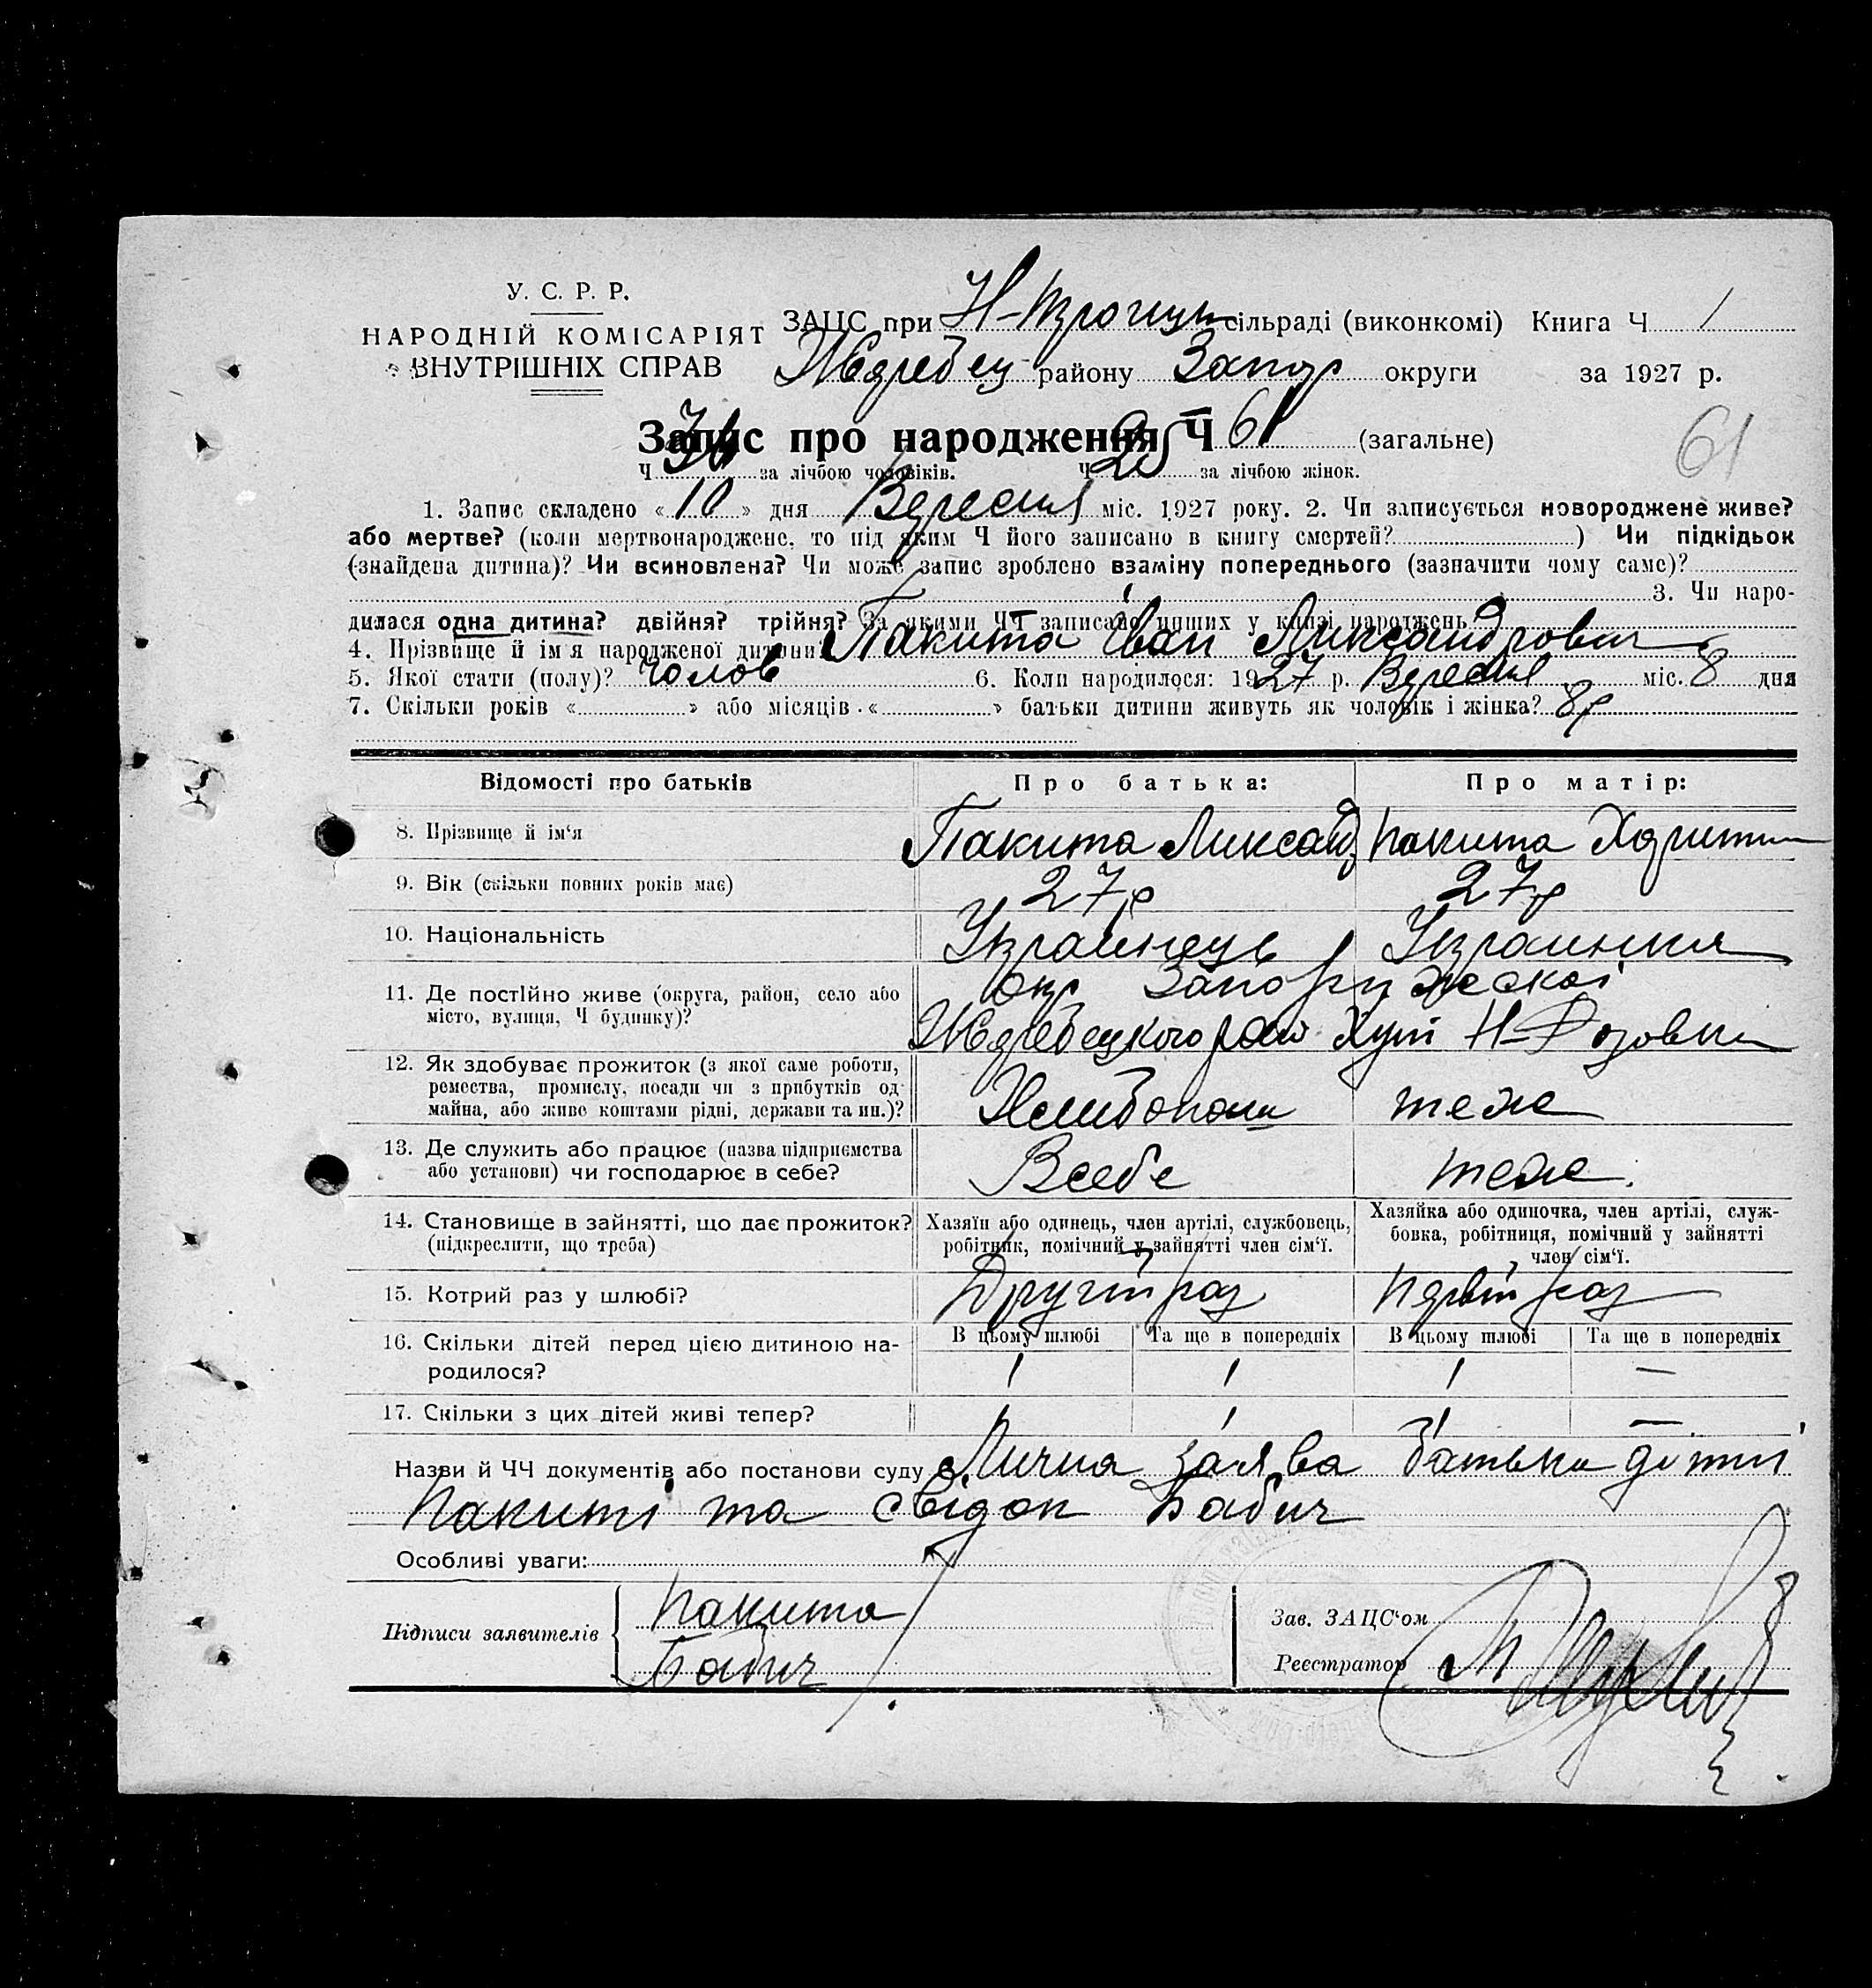 У. С. Р. Р.
НАРОДНІЙ КОМІСАРІЯТ
ВНУТРІШНІХ СПРАВ
ЗАЦС при Н- сільраді (виконкомі) Книга Ч 1
Жеребец району Запор округи за 1927 р.
Запис про народження Ч 61 (загальне)
61
Ч за лічбою чоловіків. Ч 25 за лічбою жінок.
1. Запис складено « 10 » дня Вересня міс. 1927 року. 2. Чи записується новороджене живе?
або мертве? (коли мертвонароджене, то під яким Ч його записано в книгу смертей? ) Чи підкідьок
(знайдена дитина)? Чи всиновлена? Чи може запис зроблено взаміну попереднього (зазначити чому саме)?
3. Чи наро-
дилася одна дитина? двійня? трійня? За якими ЧЧ записано инших у книзі народжень
4. Прізвище й ім'я народженої дитини Пакита Іван Лександрович
5. Якої стати (полу)? Чолов 6. Коли народилося: 1927 р. Вересня міс. 8 дня
7. Скільки років « » або місяців « » батьки дитини живуть як чоловік і жінка? 8р
Відомості про батьків Про батька: Про матір:
8. Прізвище й ім'я Пакита Лександ Пакита Харитин
9. Вік (скільки повних років має) 27р 27р
10. Національність Українець Украинка
11. Де постійно живе (округа, район, село або
місто, вулиця, Ч будинку)?
окр Запоружеской
Жеребецкого рай Хут Н-
12. Як здобуває прожиток (з якої саме роботи,
ремества, промислу, посади чи з прибутків од
майна, або живе коштами рідні, держави та ин.)?
Хлибопаш теже
13. Де служить або працює (назва підприємства
або установи) чи господарює в себе?
Всебе теже
14. Становище в зайнятті, що дає прожиток?
(підкреслити, що треба)
Хазяїн або одинець, член артілі, службовець,
робітник, помічний у зайнятті член сім'ї.
Хазяйка або одиночка, член артілі, служ-
бовка, робітниця, помічний у зайнятті
член сім'ї.
15. Котрий раз у шлюбі? Другій раз Первій раз
16. Скільки дітей перед цією дитиною на-
родилося?
В цьому шлюбі Та ще в попередніх В цьому шлюбі Та ще в попередніх
1 1 1 —
17. Скільки з цих дітей живі тепер? 1 1 1 —
Назви й ЧЧ документів або постанови суду Лична заява батька
Пакиті та свідок Бабич
Особливі уваги:
Підписи заявителів
Пакита
Бабич
Зав. ЗАЦС'ом
Реєстратор